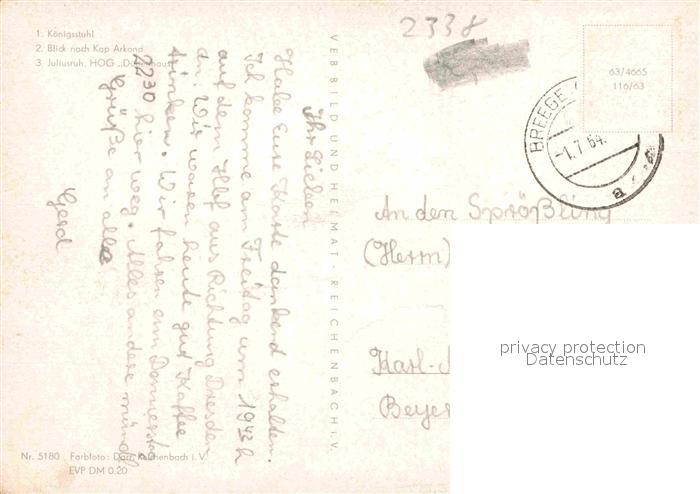 1. Königsstuhl
2. Blick nach Kap Arkona
3. Juliusruh, HOG „Dünenhaus"
2338
63/4665
116/63
BREEGE
-1.7.64.
a
VEB BILD UND HEIMAT · REICHENBACH i.V.
Ihr Lieben
Habe Eure Karte dankend erhalten.
Ich komme am Freitag um 1943 h
auf dem Hbf aus Richtung Dresden
an. Wir waren heute gut Kaffee
trinken. Wir fahren am Donnerstag
2230 hier weg. Alles andere mündl
Grüße an alle
Gerd
An den Sprößling
(Herrn)
Karl-
Beyer
privacy protection
Datenschutz
Nr. 5180 Farbfoto: Darr, Reichenbach i. V.
EVP DM 0,20